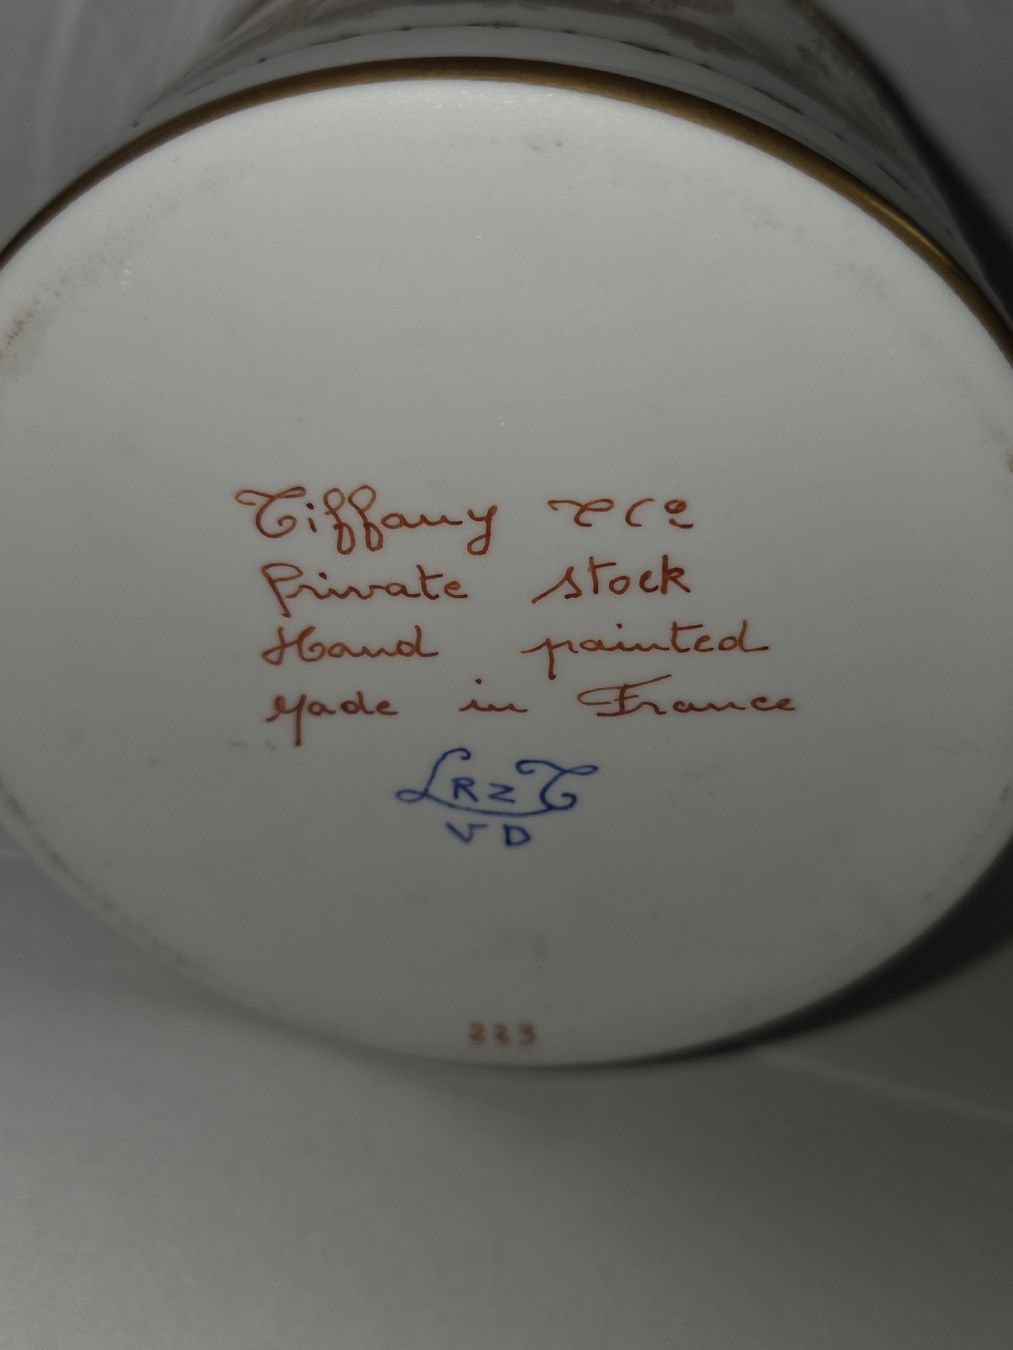 Tiffany & Co
Private stock
Hand painted
Made in France
LRzT
VD
223